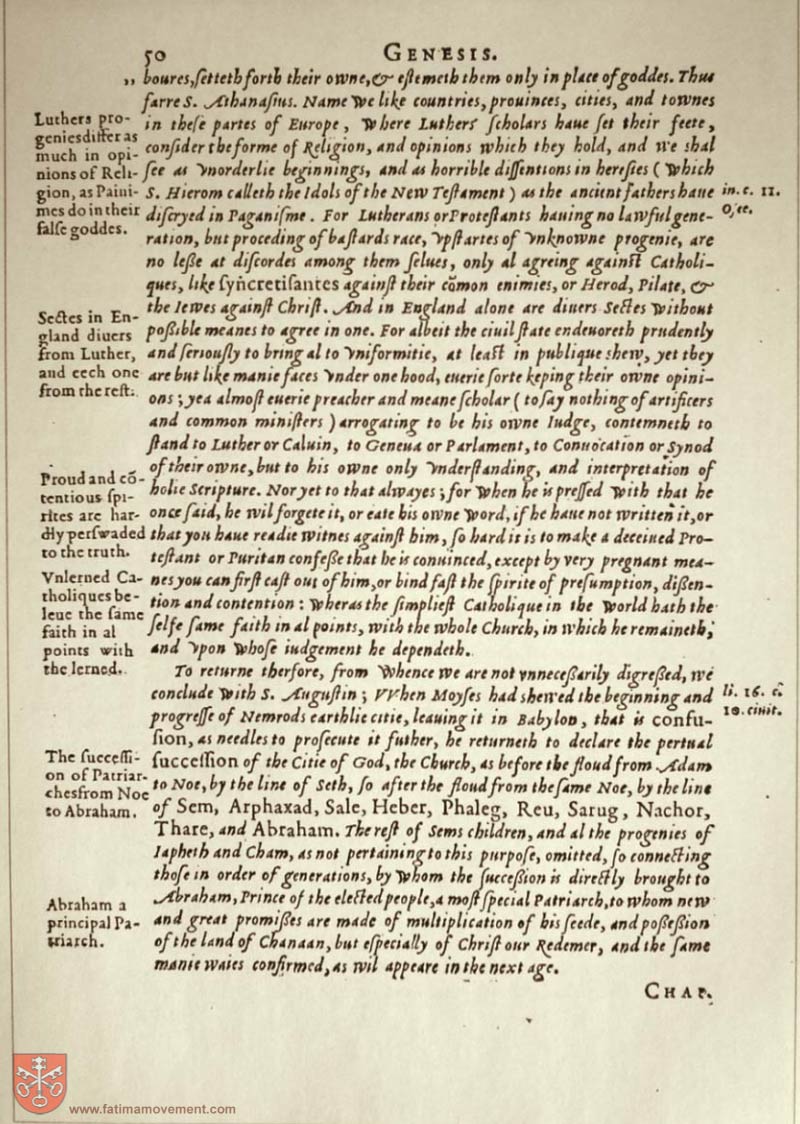 50 GENESIS.
„ boures, ſetteth forth their owne, & eſtemeth them only in place of goddes. Thus
farre S. Athanaſius. Name we like countries, prouinces, cities, and townes
in theſe partes of Europe, where Luthers ſcholars haue ſet their feete,
conſider the forme of Religion, and opinions which they hold, and we shal
ſee as vnorderlie beginnings, and as horrible diſſentions in hereſies (which
S. Hierom calleth the Idols of the New Teſtament) as the ancient fathers haue
diſcryed in Paganiſme. For Lutherans or Proteſtants hauing no lawful gene-
ration, but proceding of baſtards race, vpſtartes of vnknowne progenie, are
no leſſe at diſcordes among them ſelues, only al agreing againſt Catholi-
ques, like ſyncretiſantes againſt their cõmon enimies, or Herod, Pilate, &
the Iewes againſt Chriſt. And in England alone are diuers Sectes without
poſsible meanes to agree in one. For albeit the ciuil ſtate endeuoreth prudently
and ſeriouſly to bring al to vniformitie, at leaſt in publique shew, yet they
are but like manie faces vnder one hood, euerie ſorte keping their owne opini-
ons; yea almoſt euerie preacher and meane ſcholar (to ſay nothing of artificers
and common miniſters) arrogating to be his owne Iudge, contemneth to
ſtand to Luther or Caluin, to Geneua or Parlament, to Conuocation or Synod
of their owne, but to his owne only vnderſtanding, and interpretation of
holie Scripture. Nor yet to that alwayes; for when he is preſſed with that he
once ſaid, he wil forgete it, or eate his owne word, if he haue not written it, or
that you haue readie witnes againſt him, ſo hard it is to make a deceiued Pro-
teſtant or Puritan confeſſe that he is conuinced, except by very pregnant mea-
nes you can firſt caſt out of him, or bind faſt the ſpirite of preſumption, diſſen-
tion and contention: wheras the ſimplieſt Catholique in the world hath the
ſelfe ſame faith in al points, with the whole Church, in which he remaineth,
and vpon whoſe iudgement he dependeth.
To returne therfore, from whence we are not vnneceſſarily digreſſed, we
conclude with S. Auguſtin; VVhen Moyſes had shewed the beginning and
progreſſe of Nemrods earthlie citie, leauing it in Babylon, that is confu-
ſion, as needles to proſecute it futher, he returneth to declare the pertual
ſucceſſion of the Citie of God, the Church, as before the floud from Adam
to Noe, by the line of Seth, ſo after the floud from the ſame Noe, by the line
of Sem, Arphaxad, Sale, Heber, Phaleg, Reu, Sarug, Nachor,
Thare, and Abraham. The reſt of Sems children, and al the progenies of
Iapheth and Cham, as not pertaining to this purpoſe, omitted, ſo connecting
thoſe in order of generations, by whom the ſucceſsion is directly brought to
Abraham, Prince of the elected people, a moſt ſpecial Patriarch, to whom new
and great promiſſes are made of multiplication of his ſeede, and poſſeſsion
of the land of Chanaan, but eſpecially of Chriſt our Redemer, and the ſame
manie waies confirmed, as wil appeare in the next age.
CHAP.
Luthers pro-
genies differ as
much in opi-
nions of Reli-
gion, as Paini-
mes do in their
falſe goddes.
Sectes in En-
gland diuers
from Luther,
and eech one
from the reſt.
Proud and cõ-
tentious ſpi-
rites are har-
dly perſwaded
to the truth.
Vnlerned Ca-
tholiques be-
leue the ſame
faith in al
points with
the lerned.
The ſucceſſi-
on of Patriar-
ches from Noe
to Abraham.
Abraham a
principal Pa-
triarch.
in. c. 11.
Oſee.
li. 16. c.
10. ciuit.
www.fatimamovement.com